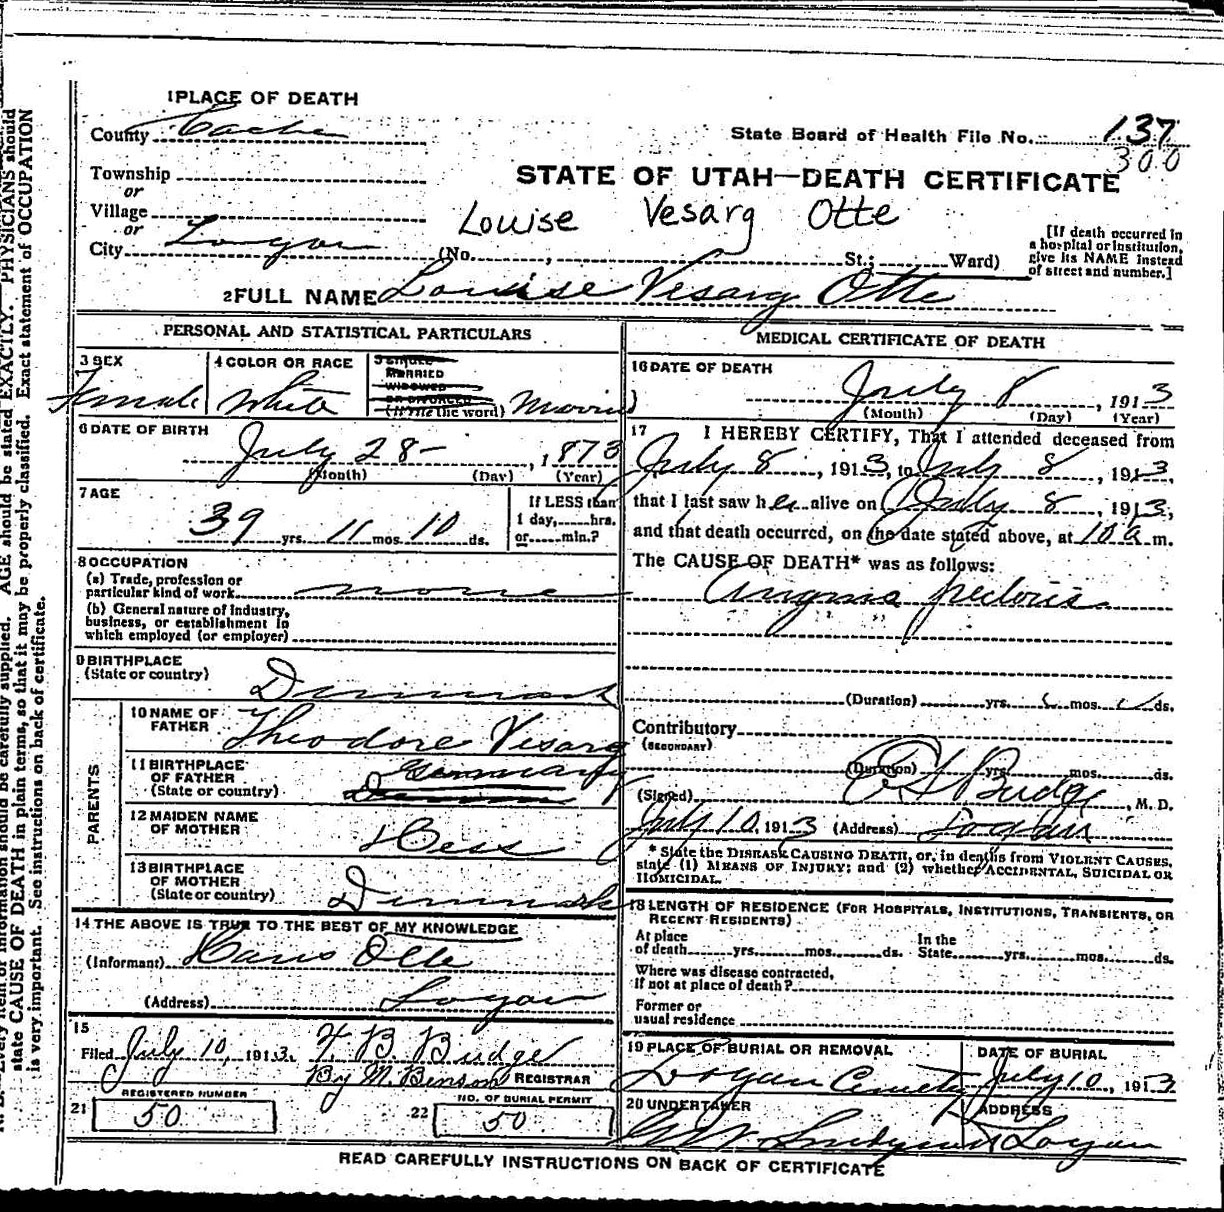 1 PLACE OF DEATH
County Cache
State Board of Health File No. 137
300
Township
or
Village
or
City Logan
STATE OF UTAH—DEATH CERTIFICATE
Louise Vesarg Otte
(No. , St.; Ward)
[If death occurred in
a hospital or institution,
give its NAME instead
of street and number.]
2 FULL NAME Louise Vesarg Otte
PERSONAL AND STATISTICAL PARTICULARS
3 SEX
Female
4 COLOR OR RACE
White
5 SINGLE
MARRIED
WIDOWED
OR DIVORCED
(Write the word) Married
6 DATE OF BIRTH
July 28- , 1873
(Month) (Day) (Year)
7 AGE
39 yrs. 11 mos. 10 ds.
If LESS than
1 day, hrs.
or min.?
8 OCCUPATION
(a) Trade, profession or
particular kind of work none
(b) General nature of industry,
business, or establishment in
which employed (or employer)
9 BIRTHPLACE
(State or country)
Denmark
PARENTS
10 NAME OF
FATHER
Theodore Vesarg
11 BIRTHPLACE
OF FATHER
(State or country)
Germany
12 MAIDEN NAME
OF MOTHER
Hess
13 BIRTHPLACE
OF MOTHER
(State or country)
Denmark
14 THE ABOVE IS TRUE TO THE BEST OF MY KNOWLEDGE
(Informant) Hans Otte
(Address) Logan
15
Filed July 10, 1913. F. B. Budge
By M. Benson REGISTRAR
REGISTERED NUMBER
21 50
NO. OF BURIAL PERMIT
22 50
MEDICAL CERTIFICATE OF DEATH
16 DATE OF DEATH
July 8 , 1913
(Month) (Day) (Year)
17 I HEREBY CERTIFY, That I attended deceased from
July 8 , 1913, to July 8 , 1913,
that I last saw her alive on July 8 , 1913,
and that death occurred, on the date stated above, at 10 a m.
The CAUSE OF DEATH* was as follows:
Angina pectoris
(Duration) yrs. mos. ds.
Contributory
(SECONDARY)
(Duration) yrs. mos. ds.
(Signed) Budge , M. D.
July 10, 1913 (Address) Logan
* State the DISEASE CAUSING DEATH, or, in deaths from VIOLENT CAUSES,
state (1) MEANS OF INJURY; and (2) whether ACCIDENTAL, SUICIDAL OR
HOMICIDAL.
18 LENGTH OF RESIDENCE (FOR HOSPITALS, INSTITUTIONS, TRANSIENTS, OR
RECENT RESIDENTS)
At place
of death yrs. mos. ds.
In the
State yrs. mos. ds.
Where was disease contracted,
If not at place of death?
Former or
usual residence
19 PLACE OF BURIAL OR REMOVAL
Logan Cemetery
DATE OF BURIAL
July 10, 1913
20 UNDERTAKER
ADDRESS
Logan
READ CAREFULLY INSTRUCTIONS ON BACK OF CERTIFICATE
AGE should be stated EXACTLY. PHYSICIANS should
state CAUSE OF DEATH in plain terms, so that it may be properly classified. Exact statement of OCCUPATION
is very important. See instructions on back of certificate.